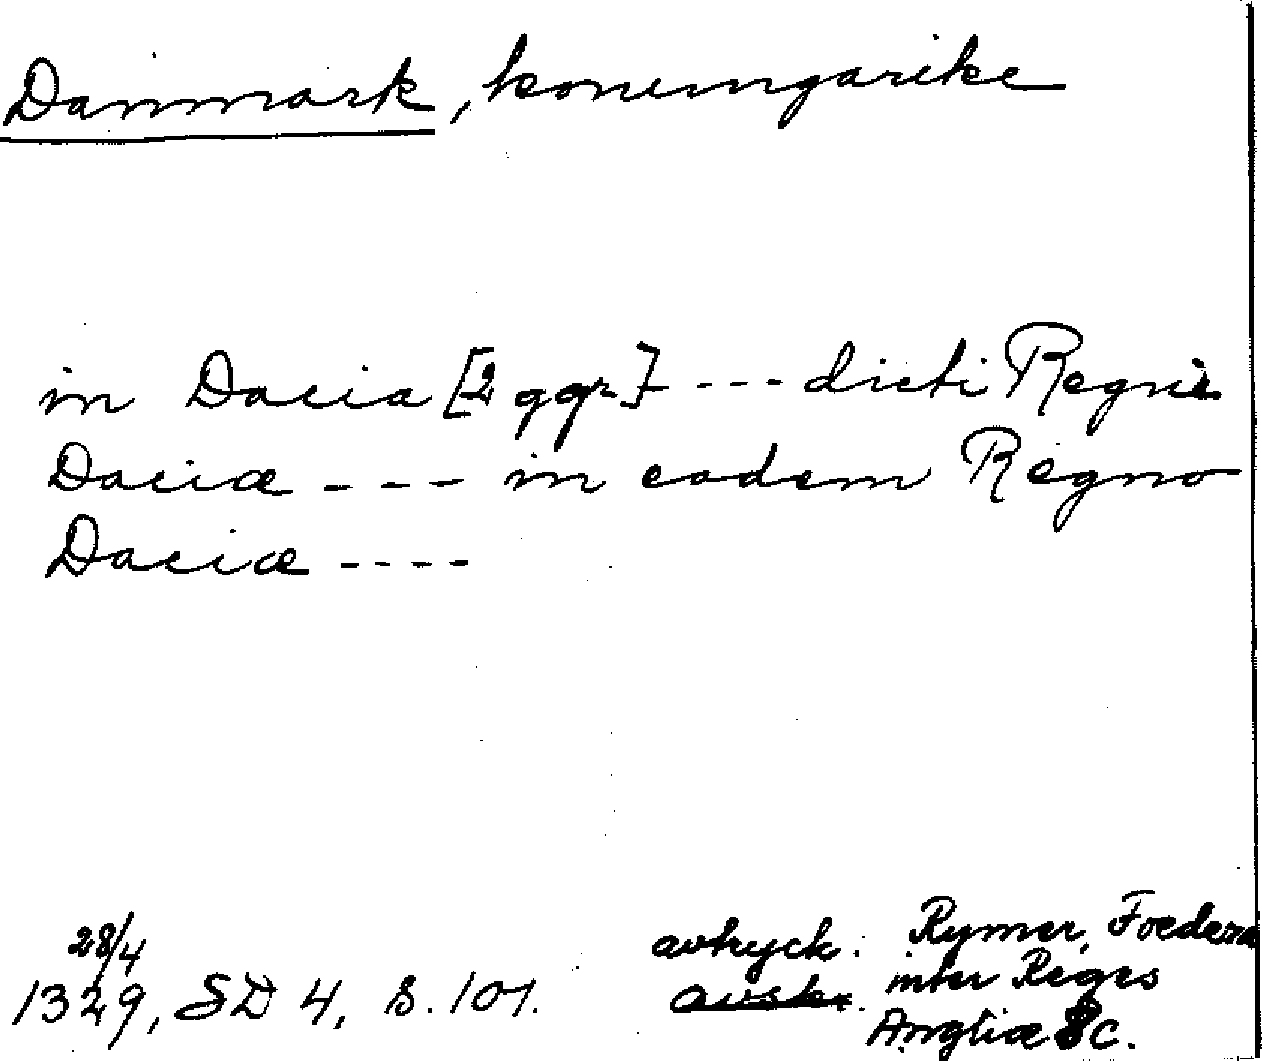 Danmark, konungarike
in Dacia [2 ggr] --- dicti Regni
Daciæ --- in eodem Regno
Daciæ ----
28/4
1329, SD 4, s. 101.
avtryck: Rymer, Foedera
avskr. inter Reges
Angliæ &c.